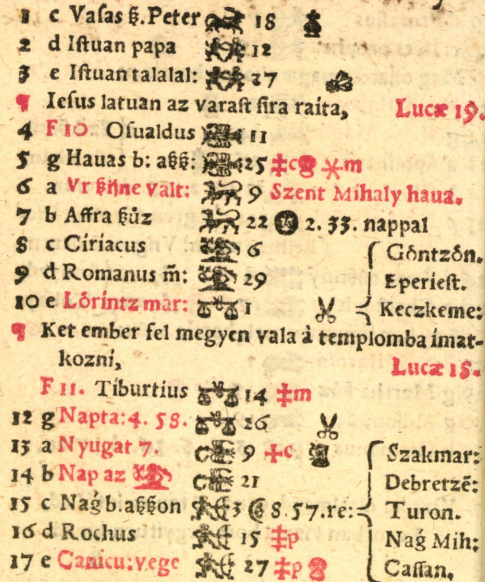 1 c Vasas ß. Peter 18
2 d Istuan papa 12
3 e Istuan talalal: 27
¶ Iesus latuan az varast sira raita, Lucæ 19.
4 F 10. Osualdus 11
5 g Hauas b: aßß: 25 ‡c m
6 a Vr ßine valt: 9 Szent Mihaly haua.
7 b Affra ßûz 22 2. 33. nappal
8 c Ciriacus 6 Gôntzôn.
9 d Romanus m̃: 29 Eperiest.
10 e Lôrintz mar: 1 Keczkeme:
¶ Ket ember fel megyen vala à templomba imat-
kozni, Lucæ 18.
F 11. Tiburtius 14 ‡m
12 g Napta: 4. 58. 26
13 a Nyugat 7. 9 ‡c Szakmar:
14 b Nap az 21 Debretzẽ:
15 c Naǵ b. aßßon 3 8. 57. re: Turon.
16 d Rochus 15 ‡p Naǵ Mih:
17 e Canicu: vege 27 ‡p Cassan.